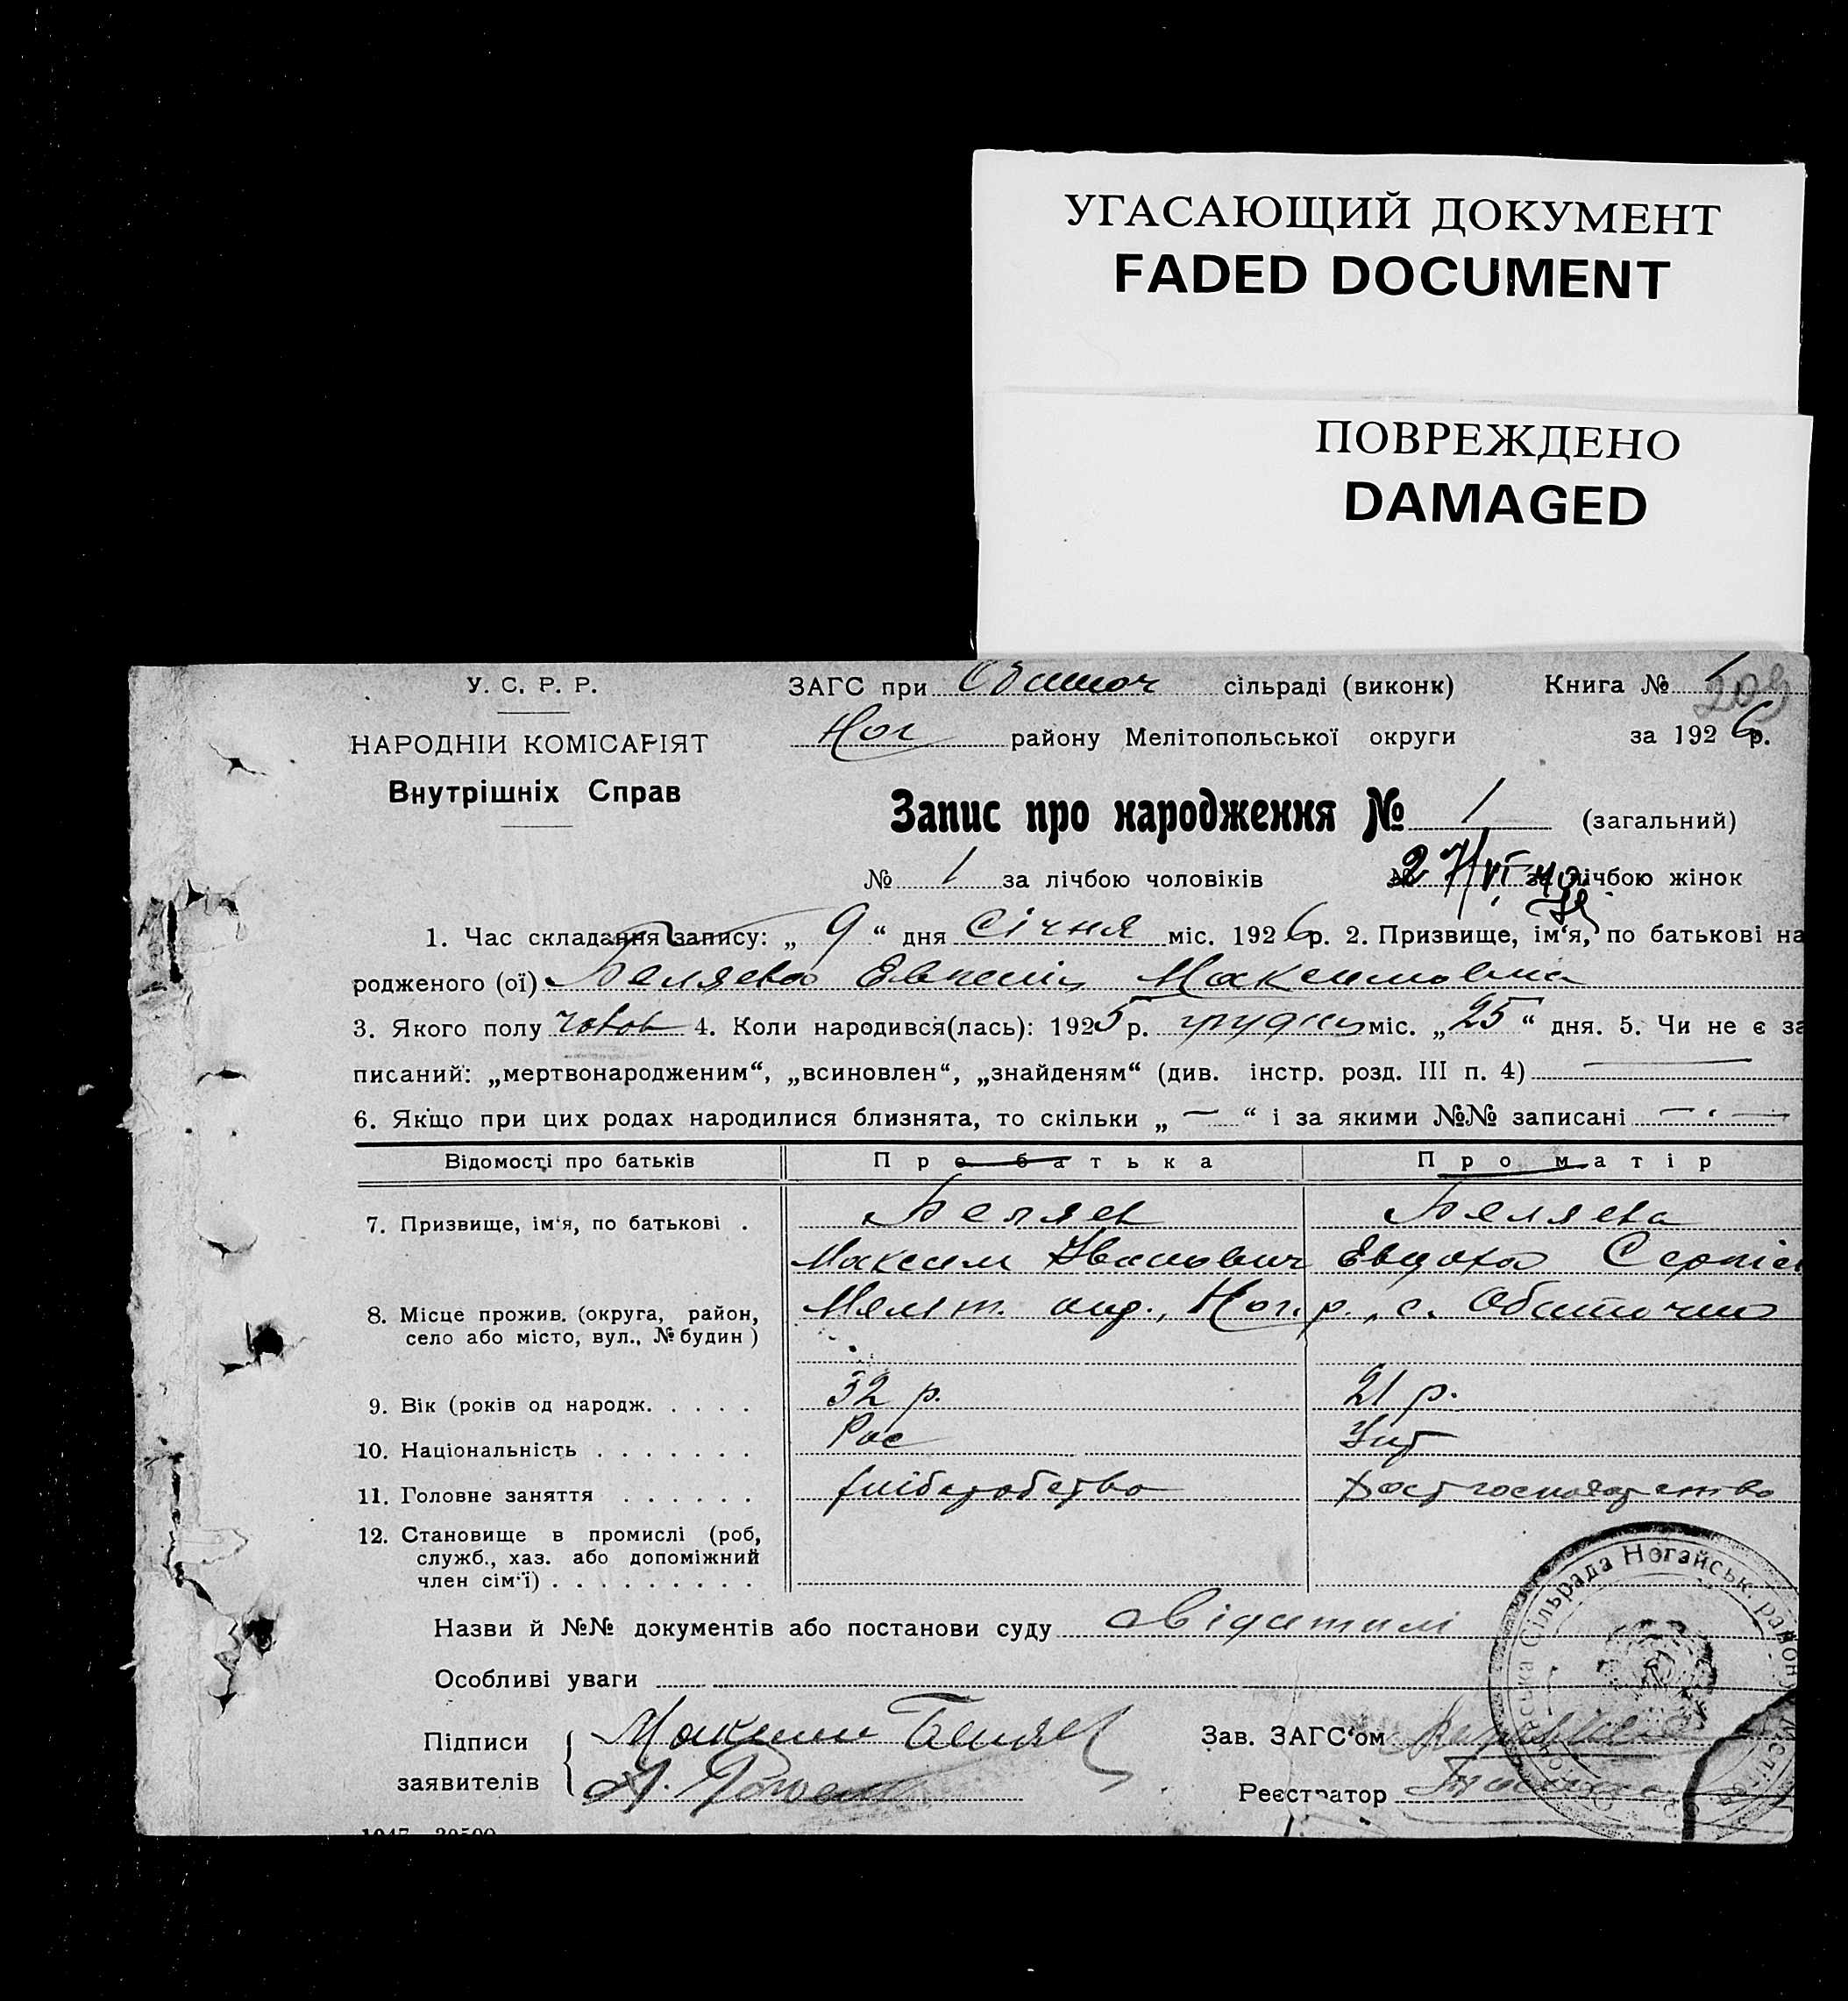 УГАСАЮЩИЙ ДОКУМЕНТ
FADED DOCUMENT
ПОВРЕЖДЕНО
DAMAGED
У. С. Р. Р. ЗАГС при Обиточ сільраді (виконк) Книга № 1
209
НАРОДНІЙ КОМІСАРІЯТ Ног району Мелітопольської округи за 1926 р.
Внутрішніх Справ
Запис про народження № 1 (загальний)
№ 1 за лічбою чоловіків № за лічбою жінок
27/VI 40
1. Час складання запису: „ 9 “ дня Січня міс. 1926 р. 2. Призвище, ім‘я, по батькові на
родженого (ої) Беляева Евгения Максимовна
3. Якого полу 4. Коли народився(лась): 1925 р. грудня міс. „ 25 “ дня. 5. Чи не є за
писаний: „мертвонародженим“, „всиновлен“, „знайденям“ (див. інстр. розд. III п. 4) —
6. Якщо при цих родах народилися близнята, то скільки „ — “ і за якими №№ записані — . —
Відомості про батьків Про батька Про матір
7. Призвище, ім‘я, по батькові . Беляев Беляева
Максим Иванович Евдоха Сергіев
8. Місце прожив. (округа, район, Меліт. окр., Ног. р., с. Обиточно
село або місто, вул., № будин )
9. Вік (років од народж. . . . . 32 р. 21 р.
10. Національність . . . . . . . Рос Укр
11. Головне заняття . . . . . . хліборобство
12. Становище в промислі (роб,
служб., хаз. або допоміжний
член сім‘ї) . . . . . . . . .
Назви й №№ документів або постанови суду
Особливі уваги
Підписи Максим Беляев Зав. ЗАГС‘ом
заявителів А. Реєстратор
Сільрада Ногайськ. району